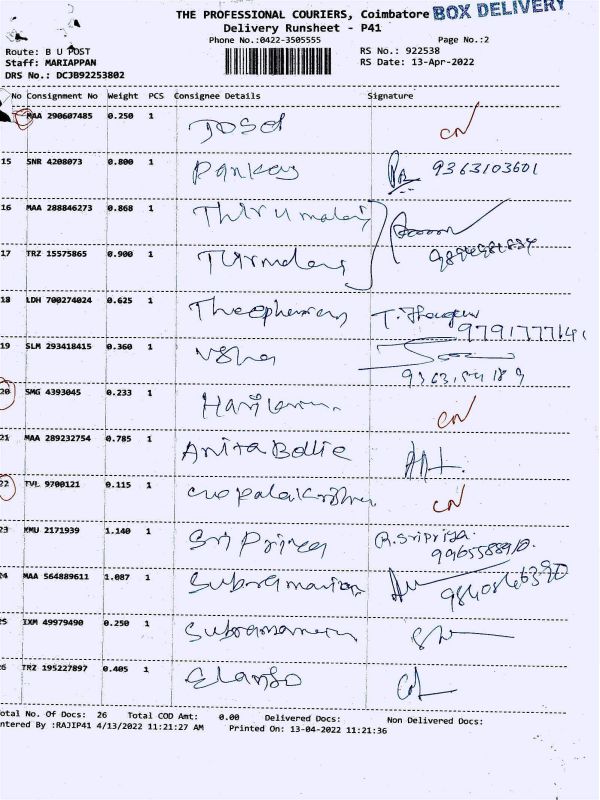 THE PROFESSIONAL COURIERS, Coimbatore BOX DELIVERY
Delivery Runsheet - P41
Phone No.:0422-3505555 Page No.:2
Route: B U POST RS No.: 922538
Staff: MARIAPPAN RS Date: 13-Apr-2022
DRS No.: DCJB92253802
No Consignment No Weight PCS Consignee Details Signature
MAA 290607485 0.250 1 CN
15 SNR 4208073 0.800 1 Pankaj 9363103601
16 MAA 288846273 0.868 1 Thirumalai
17 TRZ 15575865 0.900 1
18 LDH 700274024 0.625 1
19 SLM 293418415 0.360 1 Usha
20 SMG 4393045 0.233 1 CN
21 MAA 289232754 0.785 1 Anita Bollie
22 TVL 9700121 0.115 1 Gopalakrishnan CN
23 KMU 2171939 1.140 1 Sri Priya R. Sripriya.
9965588910.
24 MAA 564889611 1.087 1 Subramanian
25 IXM 49979490 0.250 1
26 TRZ 195227897 0.405 1 Elango
otal No. Of Docs: 26 Total COD Amt: 0.00 Delivered Docs: Non Delivered Docs:
ntered By :RAJIP41 4/13/2022 11:21:27 AM Printed On: 13-04-2022 11:21:36